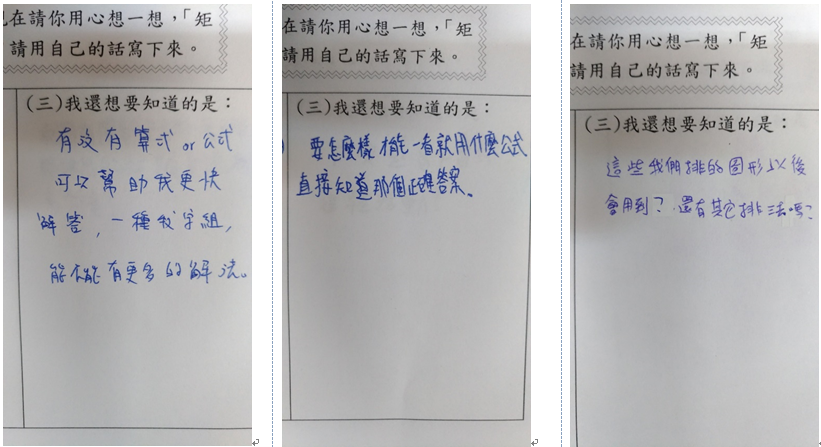 己在請你用心想一想，「矩
請用自己的話寫下來。
(三)我還想要知道的是：
有沒有算式or公式
可以幫助我更快
解答，一種數字組，
能不能有更多的解法。
在請你用心想一想，「矩
請用自己的話寫下來。
(三)我還想要知道的是：
要怎麼樣才能一看就用什麼公式
直接知道那個正確答案。
在請你用心想一想，「矩
請用自己的話寫下來。
(三)我還想要知道的是：
這些我們排的圖形以後
會用到？還有其它排法嗎？